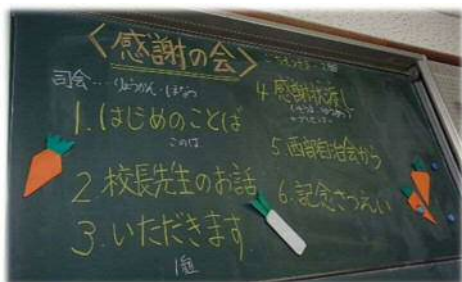 〈感謝の会〉
司会…りょうかん・はなの
1.はじめのことば
このは
2.校長先生のお話
3.いただきます
1組
4.感謝状渡し
5.西部自治会から
6.記念さつえい